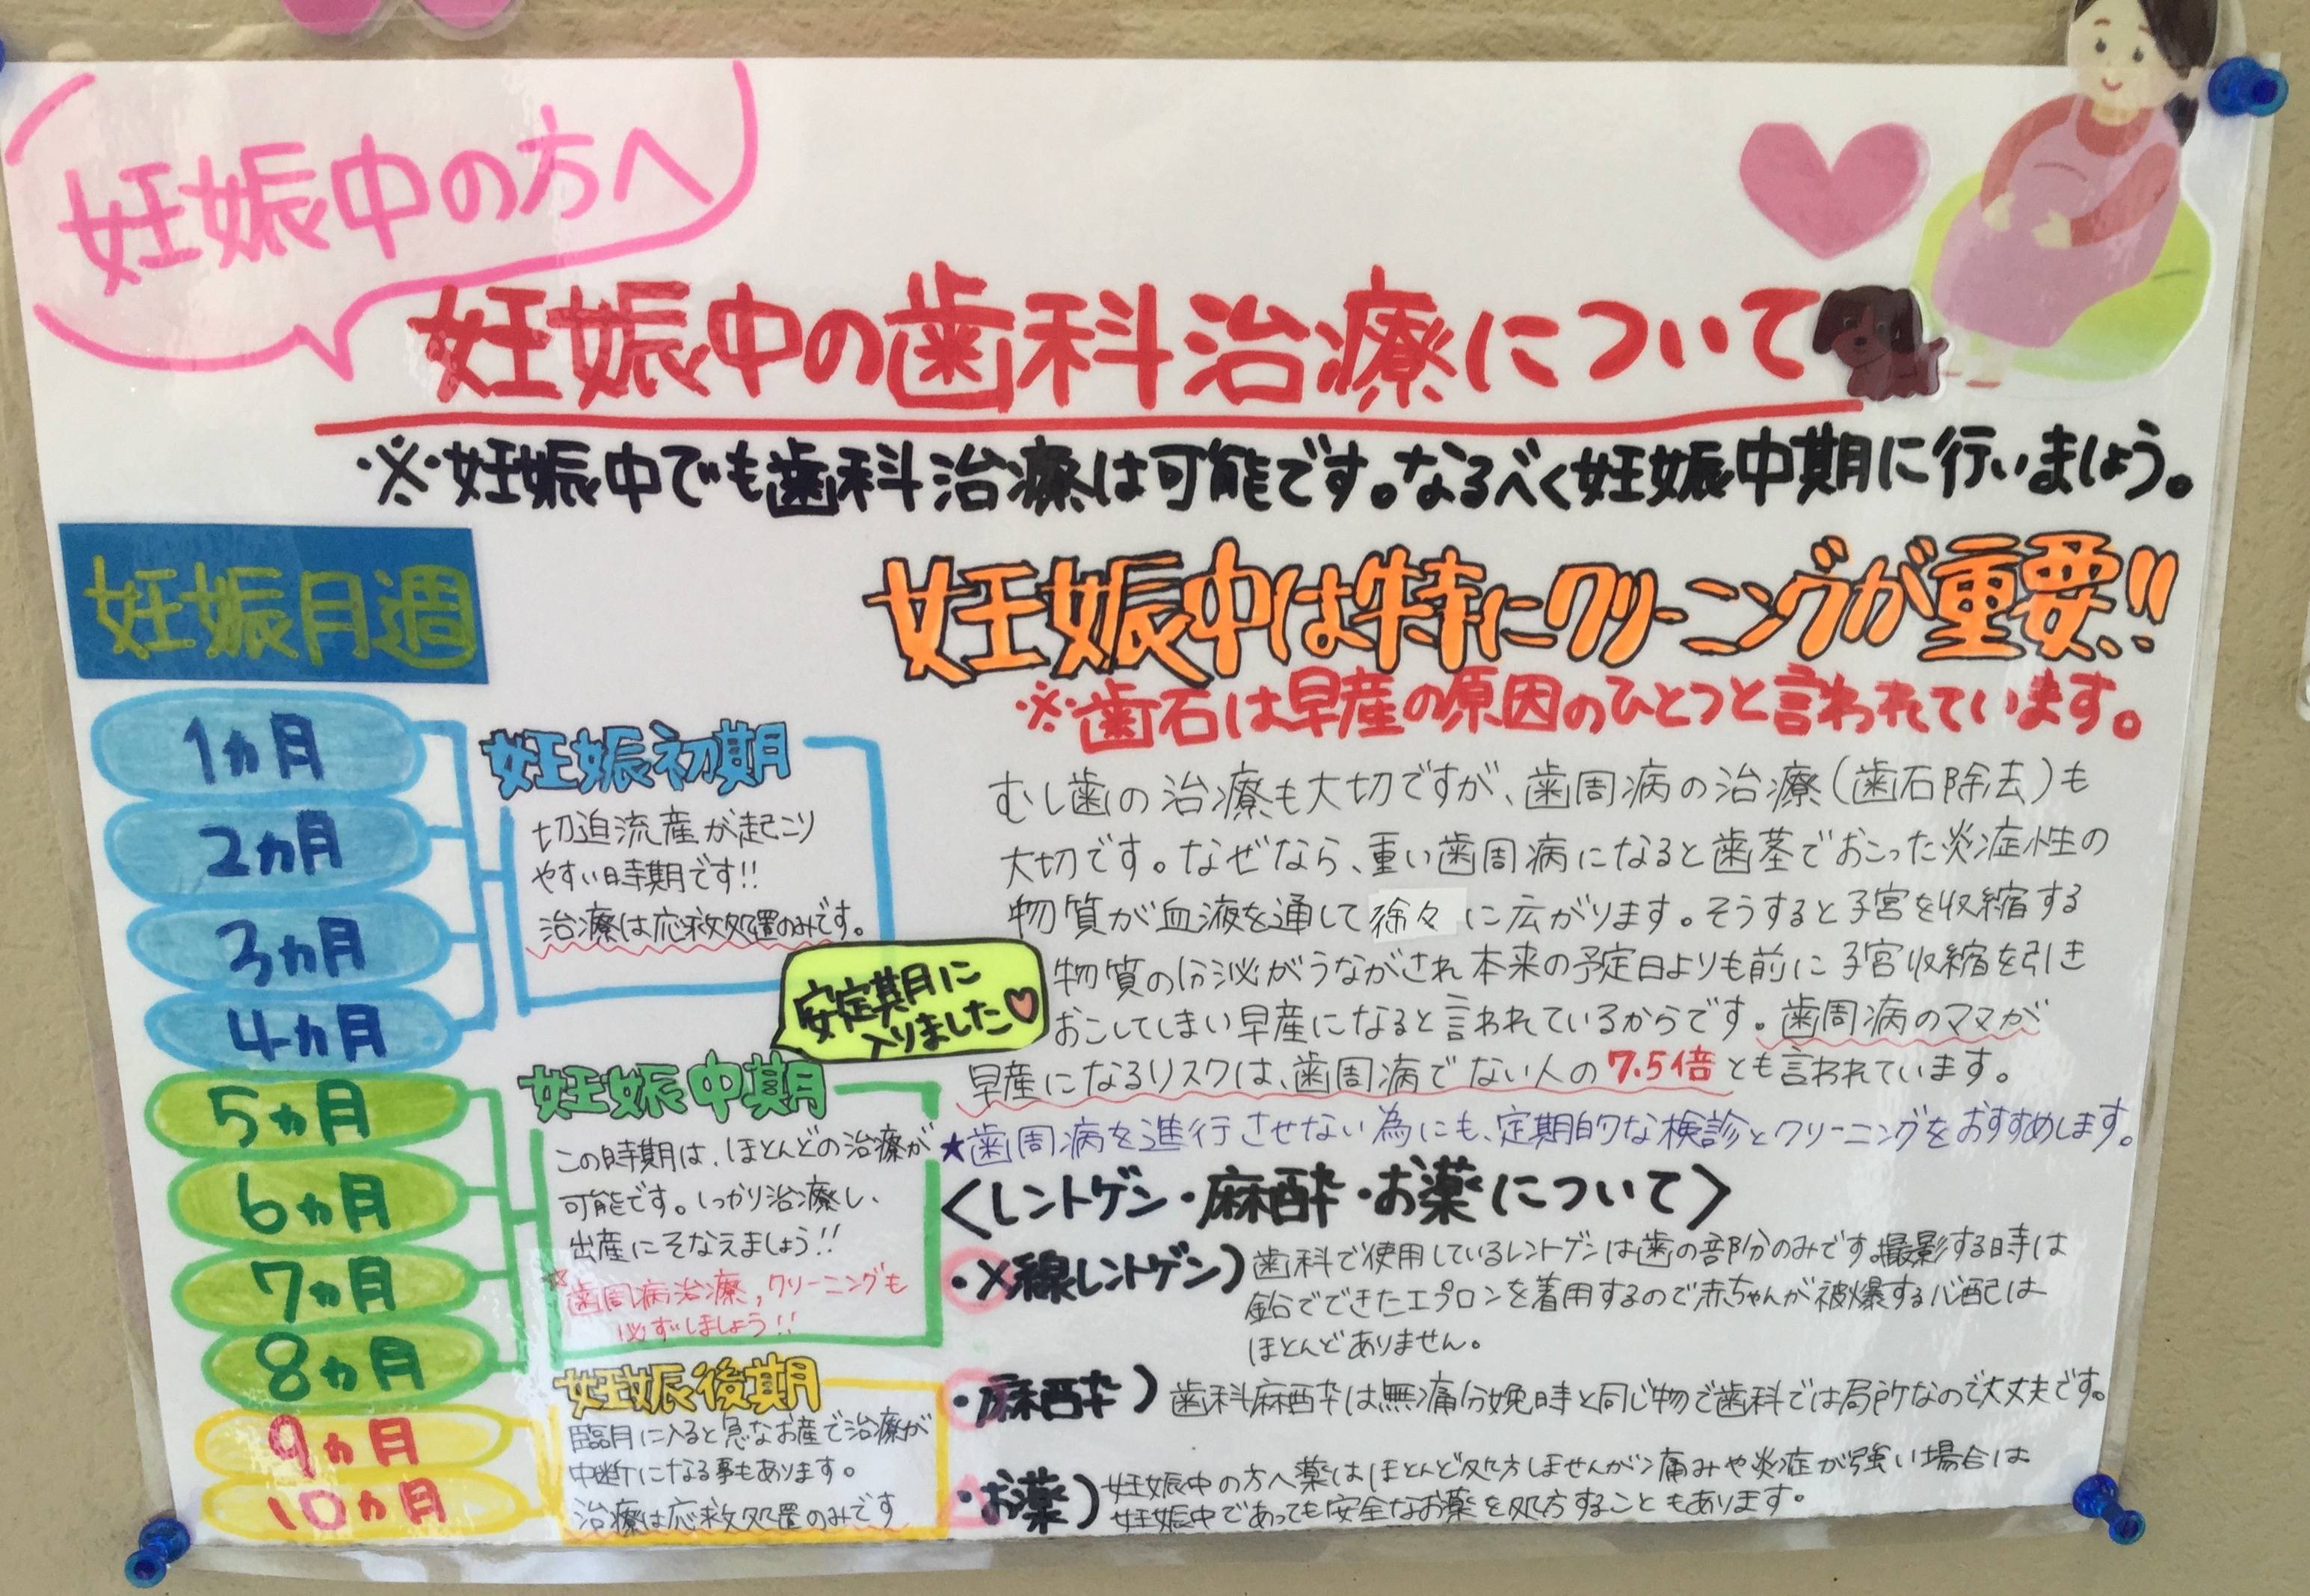 妊娠中の方へ
妊娠中の歯科治療について
※妊娠中でも歯科治療は可能です。なるべく妊娠中期に行いましょう。
妊娠月週
1ヵ月
2ヵ月
3ヵ月
4ヵ月
妊娠初期
切迫流産が起こり
やすい時期です!!
治療は応救処置のみです。
安定期に
入りました♡
5ヵ月
6ヵ月
7ヵ月
8ヵ月
妊娠中期
この時期は、ほとんどの治療が
可能です。しっかり治療し、
出産にそなえましょう!!
☆歯周病治療,クリーニングも
必ずしましょう!!
9ヵ月
10ヵ月
妊娠後期
臨月に入ると急なお産で治療が
中断になる事もあります。
治療は応救処置のみです
妊娠中は特にクリーニングが重要!!
※歯石は早産の原因のひとつと言われています。
むし歯の治療も大切ですが、歯周病の治療(歯石除去)も
大切です。なぜなら、重い歯周病になると歯茎でおこった炎症性の
物質が血液を通して徐々に広がります。そうすると子宮を収縮する
物質の分泌がうながされ本来の予定日よりも前に子宮収縮を引き
おこしてしまい早産になると言われているからです。歯周病のママが
早産になるリスクは、歯周病でない人の7.5倍とも言われています。
★歯周病を進行させない為にも、定期的な検診とクリーニングをおすすめします。
<レントゲン・麻酔・お薬について>
・X線レントゲン)歯科で使用しているレントゲンは歯の部分のみです。撮影する時は
鉛でできたエプロンを着用するので赤ちゃんが被爆する心配は
ほとんどありません。
・麻酔)歯科麻酔は無痛分娩時と同じ物で歯科では局所なので大丈夫です。
・お薬)妊娠中の方へ薬はほとんど処方しませんが、痛みや炎症が強い場合は
妊娠中であっても安全なお薬を処方することもあります。